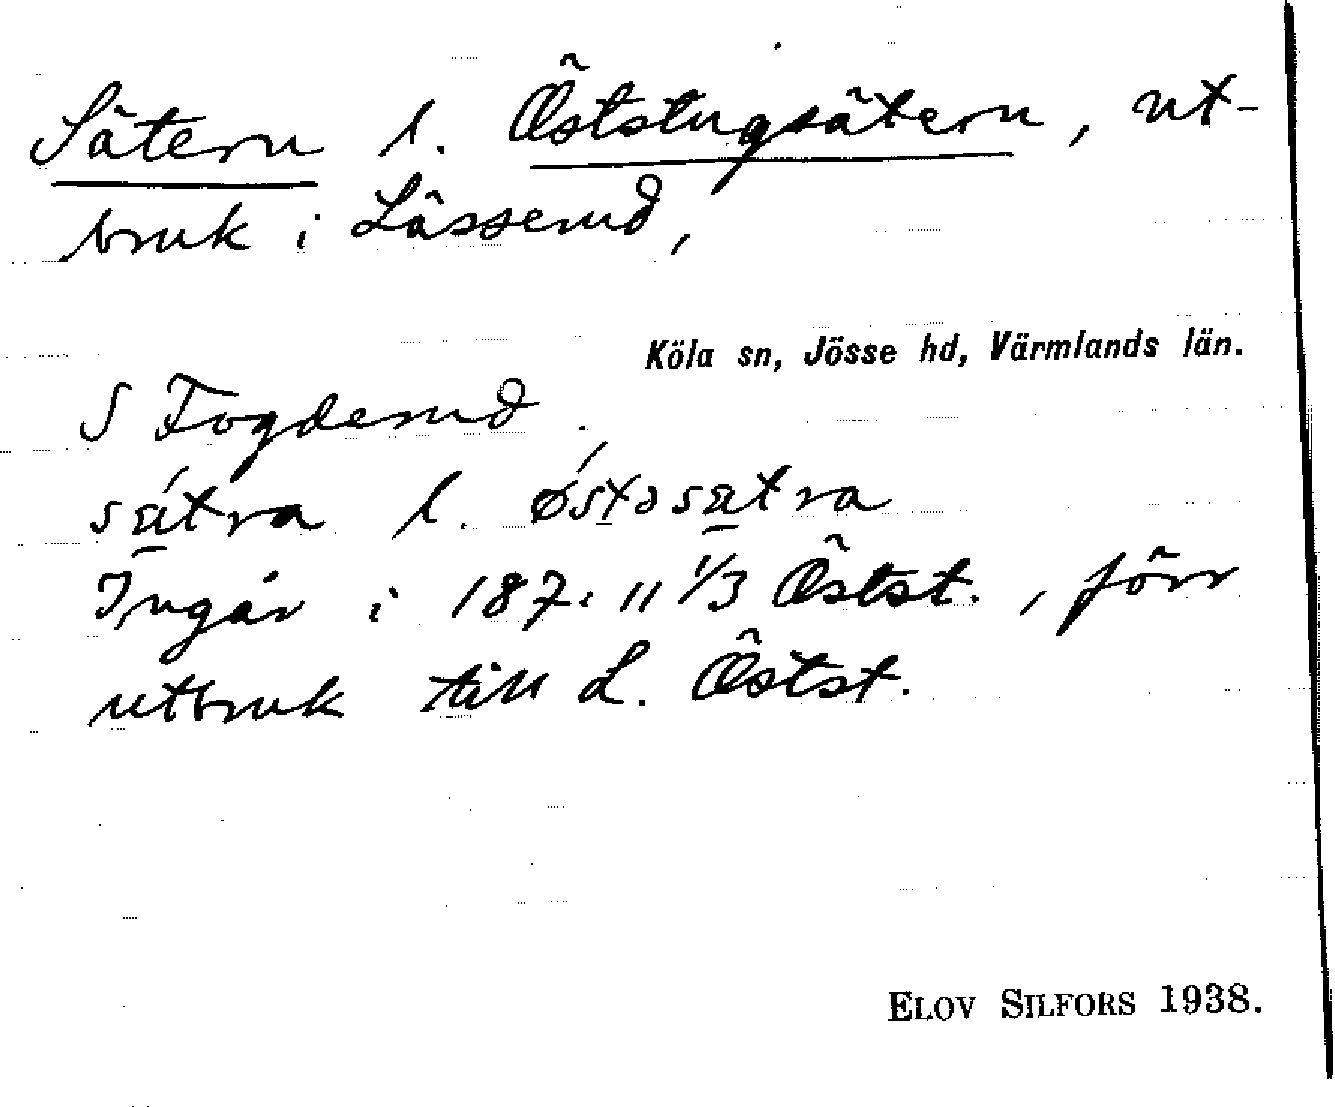 Sätern l. Öststugsätern, ut-
bruk i Lässerud,
Köla sn, Jösse hd, Värmlands län.
S Fogderud.
sä́tra l. ǿstəsätra
Ingår i 187.11 1/3 Östst., förr
utbruk till L. Östst.
ELOV SILFORS 1938.